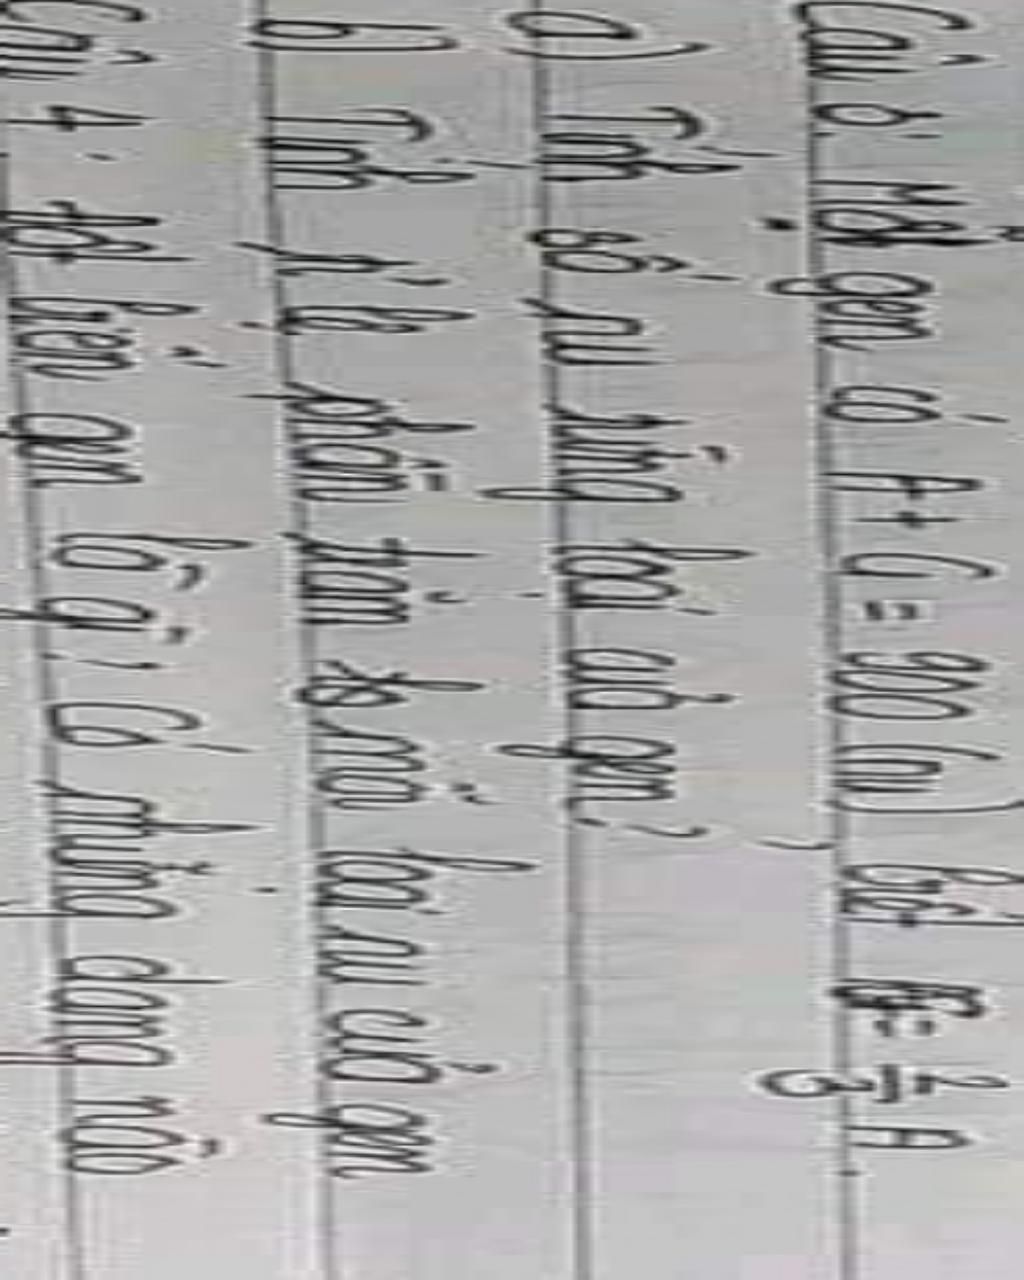 Câu 8: Một gen có A + G = 900 (nu), biết G = 2/3 A.
a) Tính số nu từng loại của gen?
b) Tính tỉ lệ phần trăm số mỗi loại nu của gen
Câu 4: Đột biến gen là gì? Có những dạng nào